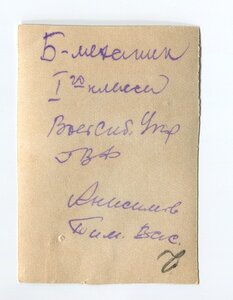 Б-механик
I го класса
Вост Сиб. Упр
ГВФ
Анисимов
Тим. Вас.